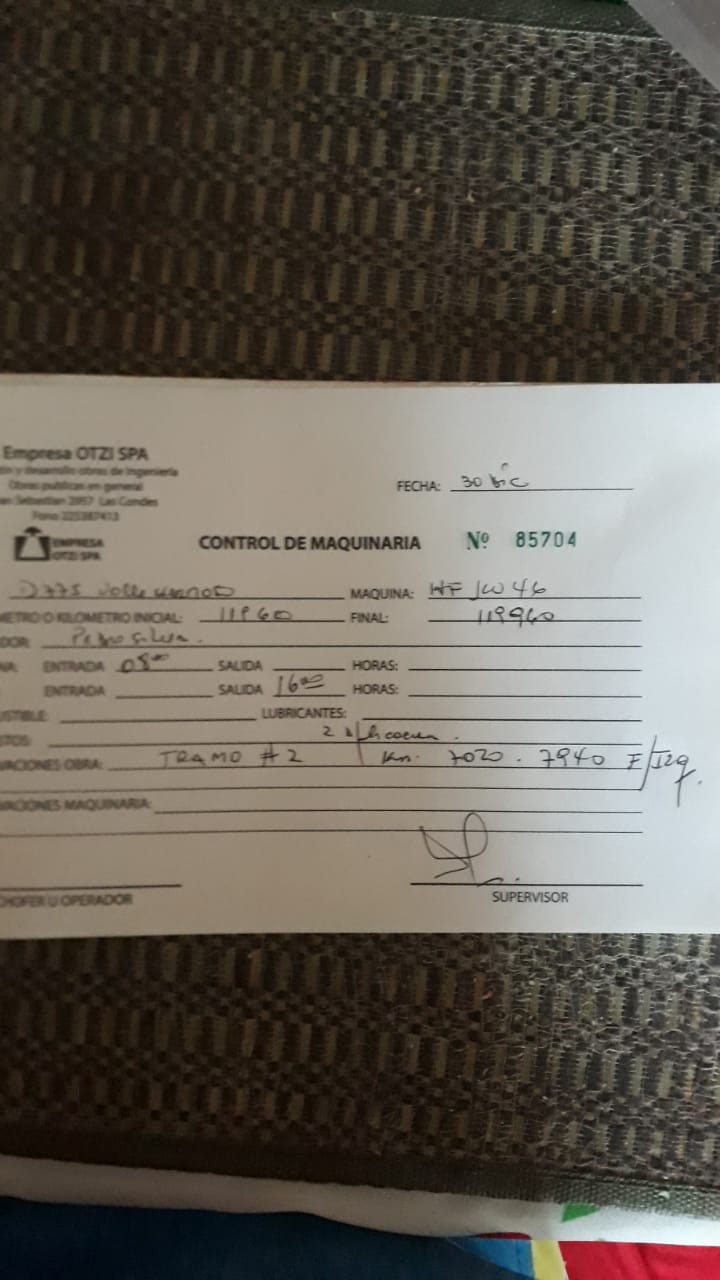 Empresa OTZI SPA
y desarrollo obras de Ingeniería
Obras publicas en general
an Sebastian 2957 Las Condes
Fono
FECHA: 30
EMPRESA
OTZI SPA
CONTROL DE MAQUINARIA Nº 85704
D775 MAQUINA: WF JW 46
METRO O KILOMETRO INICIAL: 11960 FINAL: 119960
DOR: Pedro Silva.
NA: ENTRADA 08°° SALIDA HORAS:
ENTRADA SALIDA 16°° HORAS:
USTIBLE: LUBRICANTES:
STOS: 2
VACIONES OBRA: TRAMO #2 Km. 7020. 7940 E/Izq.
VACIONES MAQUINARIA:
CHOFER U OPERADOR SUPERVISOR